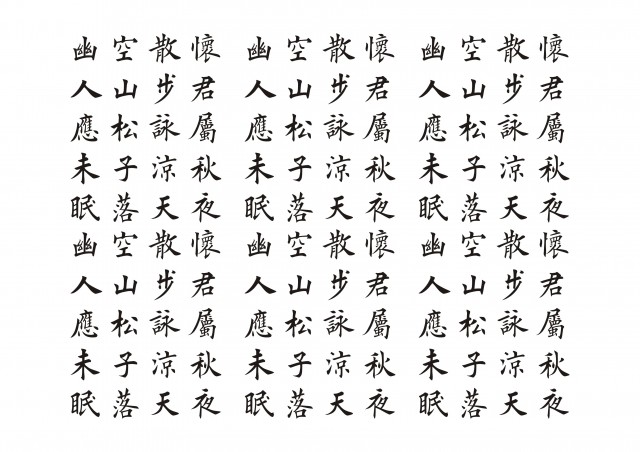 懷君屬秋夜懷君屬秋夜
散步詠涼天散步詠涼天
空山松子落空山松子落
幽人應未眠幽人應未眠
懷君屬秋夜懷君屬秋夜
散步詠涼天散步詠涼天
空山松子落空山松子落
幽人應未眠幽人應未眠
懷君屬秋夜懷君屬秋夜
散步詠涼天散步詠涼天
空山松子落空山松子落
幽人應未眠幽人應未眠